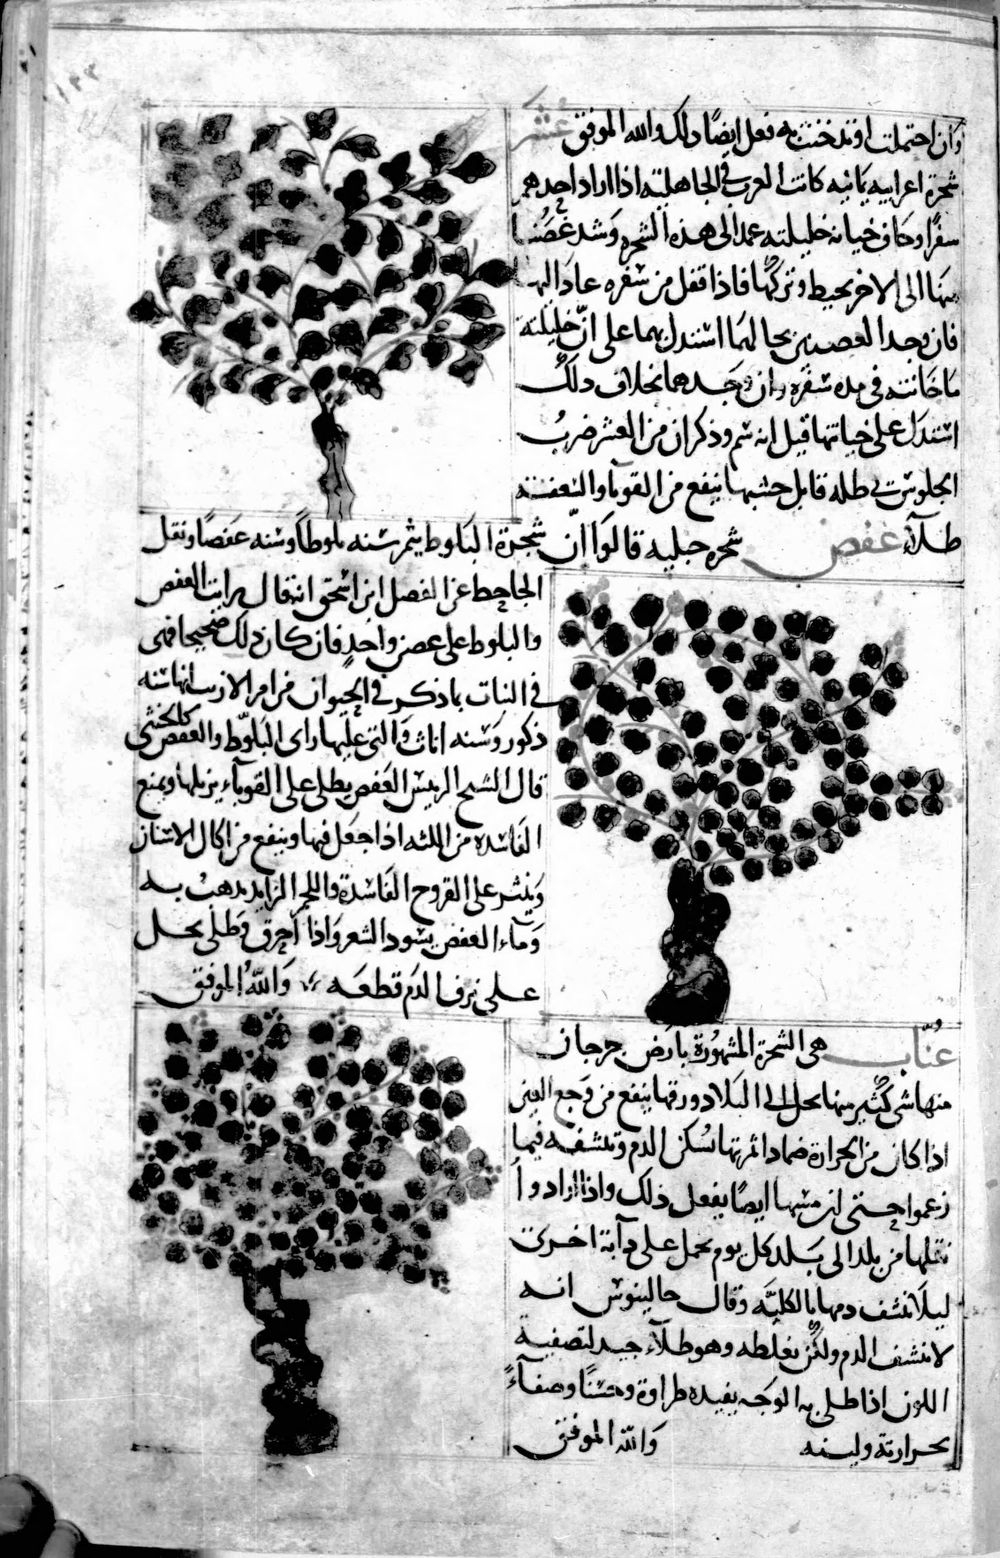 ١٢٣
وان احتملت او تدخنت به فعل ايضا ذلك والله الموفق عشر
شجرة اعرابيه يمانيه كانت العرب في الجاهلية اذا اراد احدهم
سفرا وخاف خيانة خليلته عمد الى هذه الشجره وشد غصنا
منها الى الاخر بخيط وتركها فاذا قفل من سفره عاد اليها
فان وجد الغصنين بحالهما استدل بهما على ان خليلته
ما خانته في مده سفره وان وجدهما بخلاف ذلك
استدل على خيانتها قيل انه سم وذكر ان من العشر ضرب
الجلوس في ظله قاتل خشبها ينفع من القوبا والنعفـه
طلآء عفص شجره جبليه قالوا ان
شجرة البلوط يثمر سنه بلوطا وسنه عفصا ونقل
الجاحظ عن الفضل ابن اسحق انه قال رايت العفص
والبلوط على غصن واحد فان كان ذلك صحيحا فهى
في النبات ما ذكر في الحيوان من امر الارنب انها سنه
ذكور وسنه اناث والتي عليها راى البلوط والعفص كالخنثى
قال الشيخ الرييس العفص يطلى على القوبآء يزيلها ويمنع
الفاسده من اللثه اذا جعل فيها وينفع من اكال الاسنان
وينثر على القروح الفاسدة واللحم الزايد يذهب به
وماء العفص يسود الشعر واذا احرق وطلى بخل
على نزف الدم قطعه والله الموفق
عناب هى الشجرة المشهورة بارض جرجان
منها شى كثير منها يحمل الى البلاد ورقها ينفع من وجع العين
اذا كان من الحرارة ضمادا ثمرتها تسكن الدم وتنشفه فيما
زعموا حتى ان مسها ايضا يفعل ذلك واذا ارادوا
نقلها من بلد الى بلد كل يوم يحمل على دآبة اخرى
ليلا تنشف دمها بالكليه وقال جالينوس انه
لا ينشف الدم ولكن يغلظه وهو طلآء جيد لتصفية
اللون اذا طلى به الوجه يفيده طراوة وحسنا وصفآء
بحرارته ولينه والله الموفق